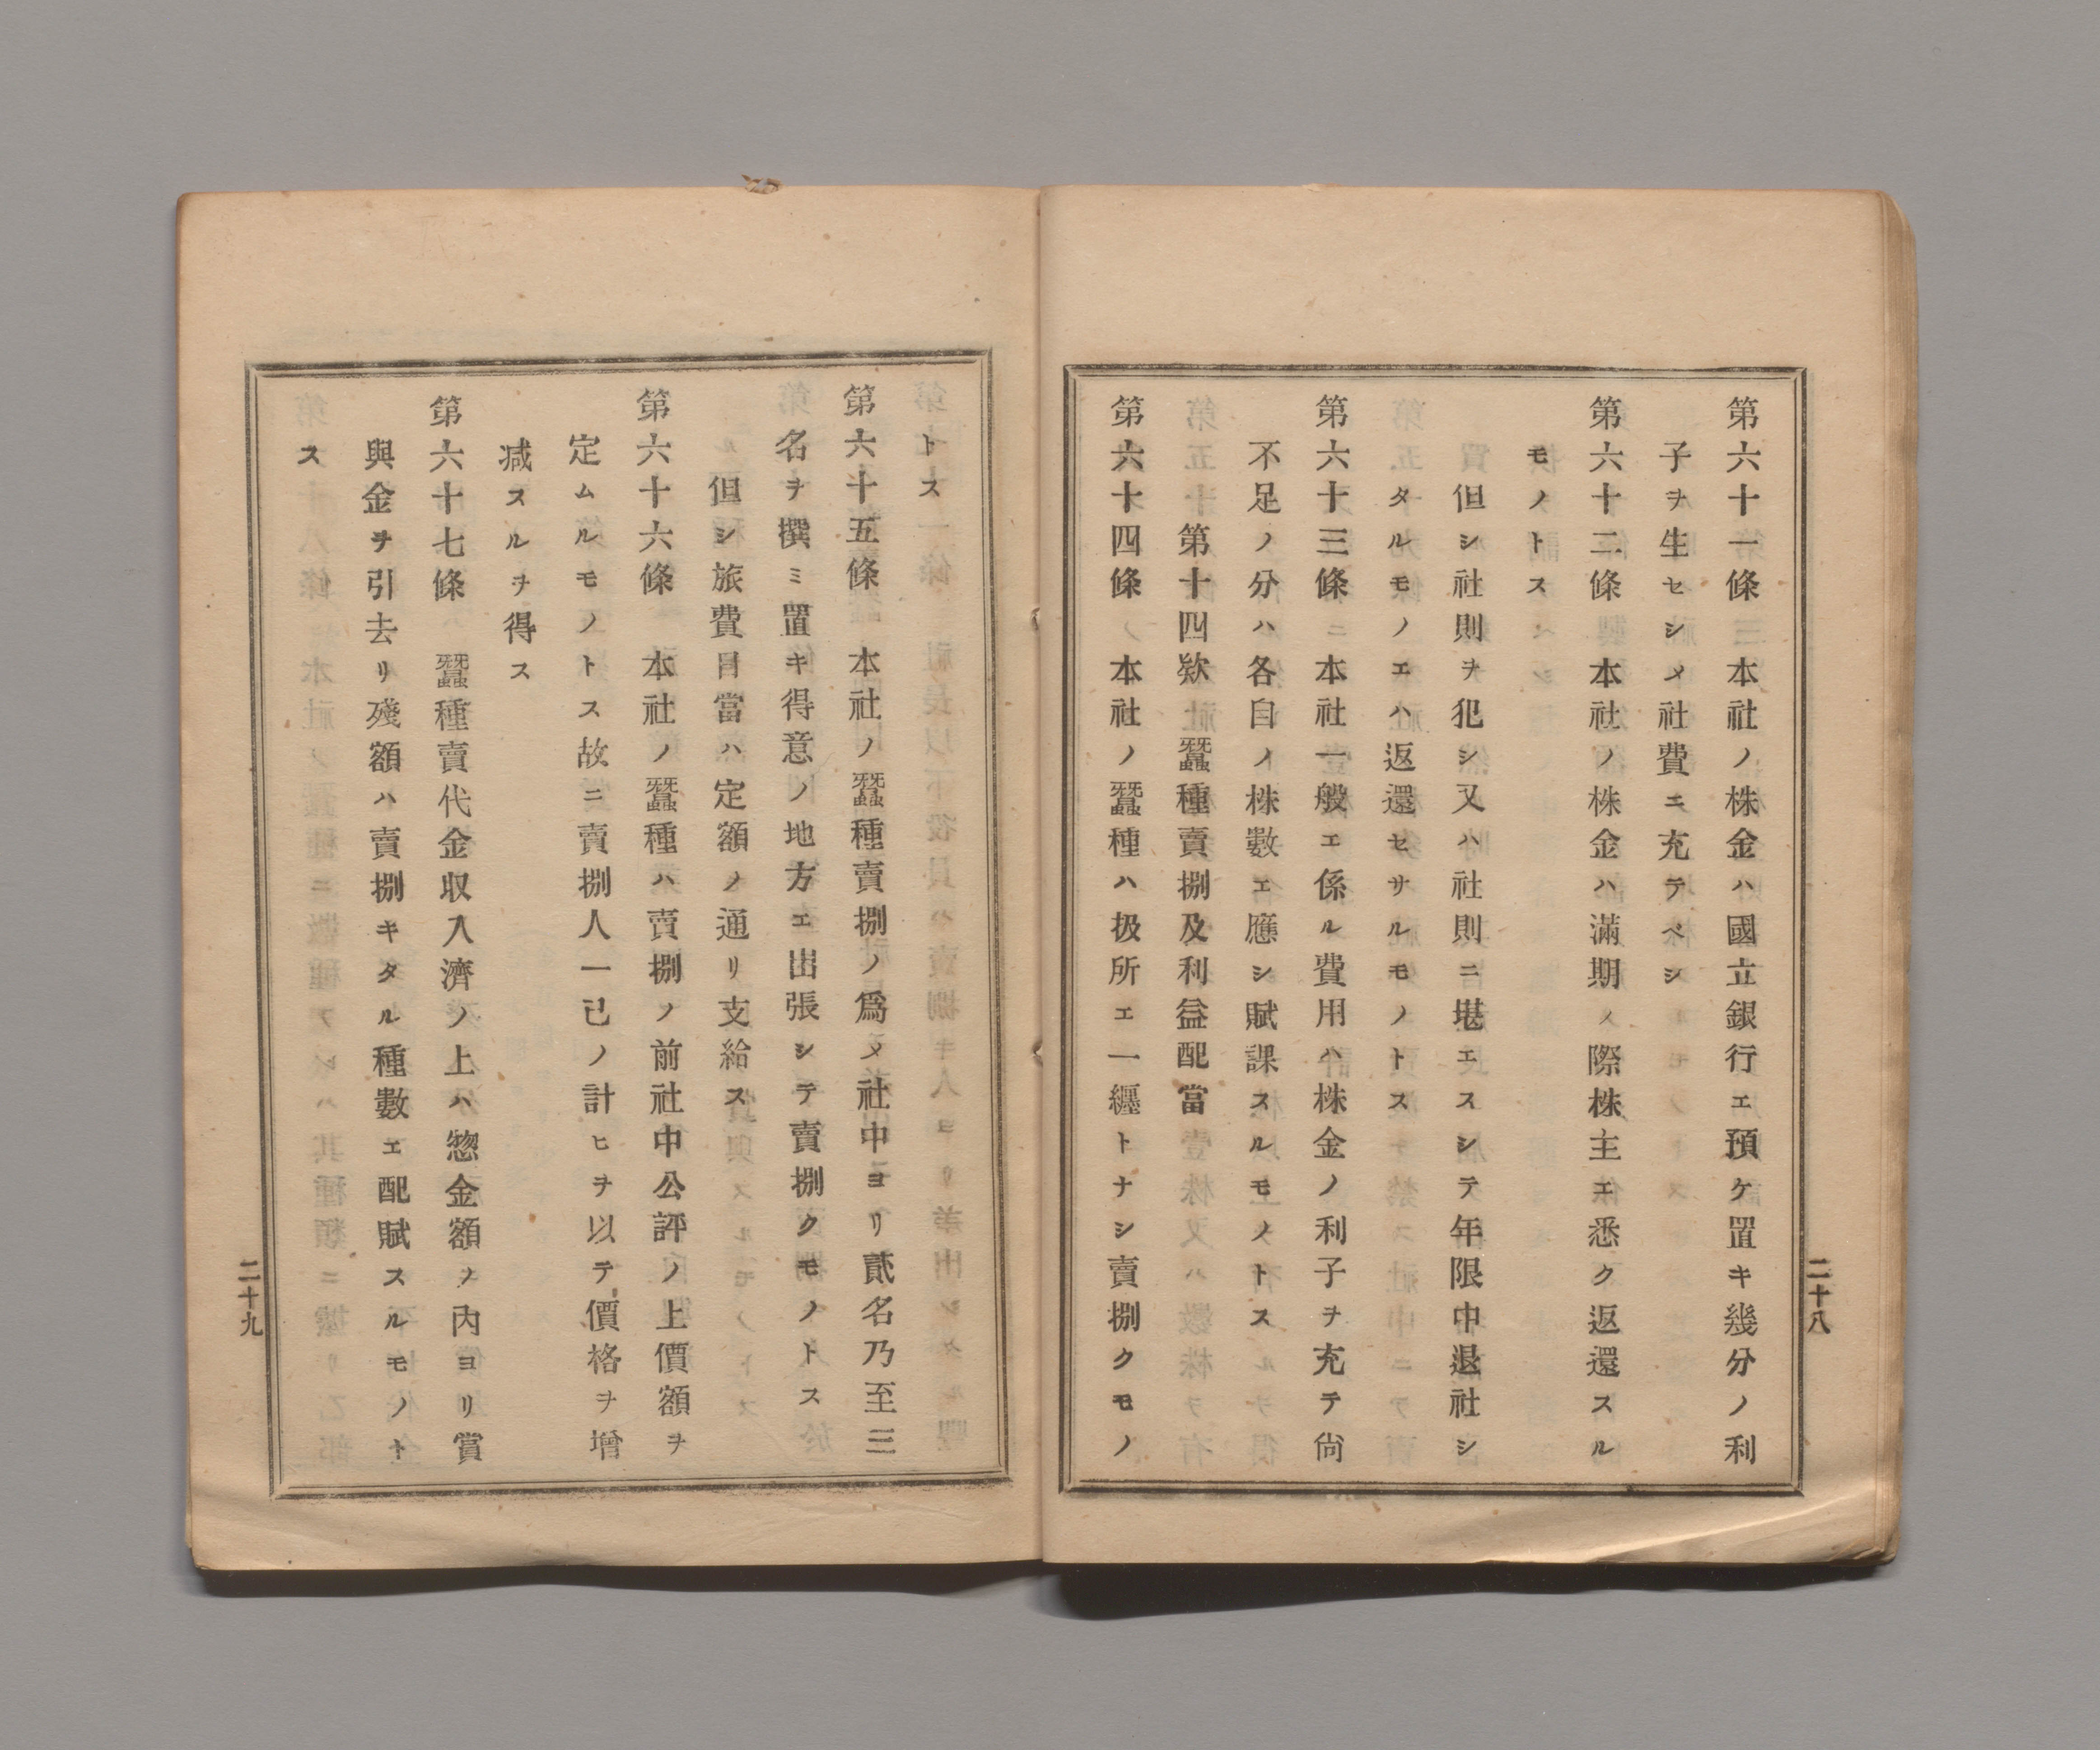 第六十一條　本社ノ株金ハ國立銀行エ預ケ置キ幾分ノ利
子ヲ生セシメ社費ニ充テベシ
第六十二條　本社ノ株金ハ滿期ノ際株主エ悉ク返還スル
モノトス
但シ社則ヲ犯シ又ハ社則ニ堪エスシテ年限中退社シ
タルモノエハ返還セサルモノトス
第六十三條　本社一般エ係ル費用ハ株金ノ利子ヲ充テ尙
不足ノ分ハ各自ノ株數エ應シ賦課スルモノトス
第十四欵　蠶種賣捌及利益配當
第六十四條　本社ノ蠶種ハ扱所エ一纒トナシ賣捌クモノ
二十八
トス
第六十五條　本社ノ蠶種賣捌ノ爲メ社中ヨリ貳名乃至三
名ヲ撰ミ置キ得意ノ地方エ出張シテ賣捌クモノトス
但シ旅費日當ハ定額ノ通リ支給ス
第六十六條　本社ノ蠶種ハ賣捌ノ前社中公評ノ上價額ヲ
定ムルモノトス故ニ賣捌人一己ノ計ヒヲ以テ價格ヲ增
减スルヲ得ス
第六十七條　蠶種賣代金収入濟ノ上ハ惣金額ノ內ヨリ賞
與金ヲ引去リ殘額ハ賣捌キタル種數エ配賦スルモノト
ス
二十九